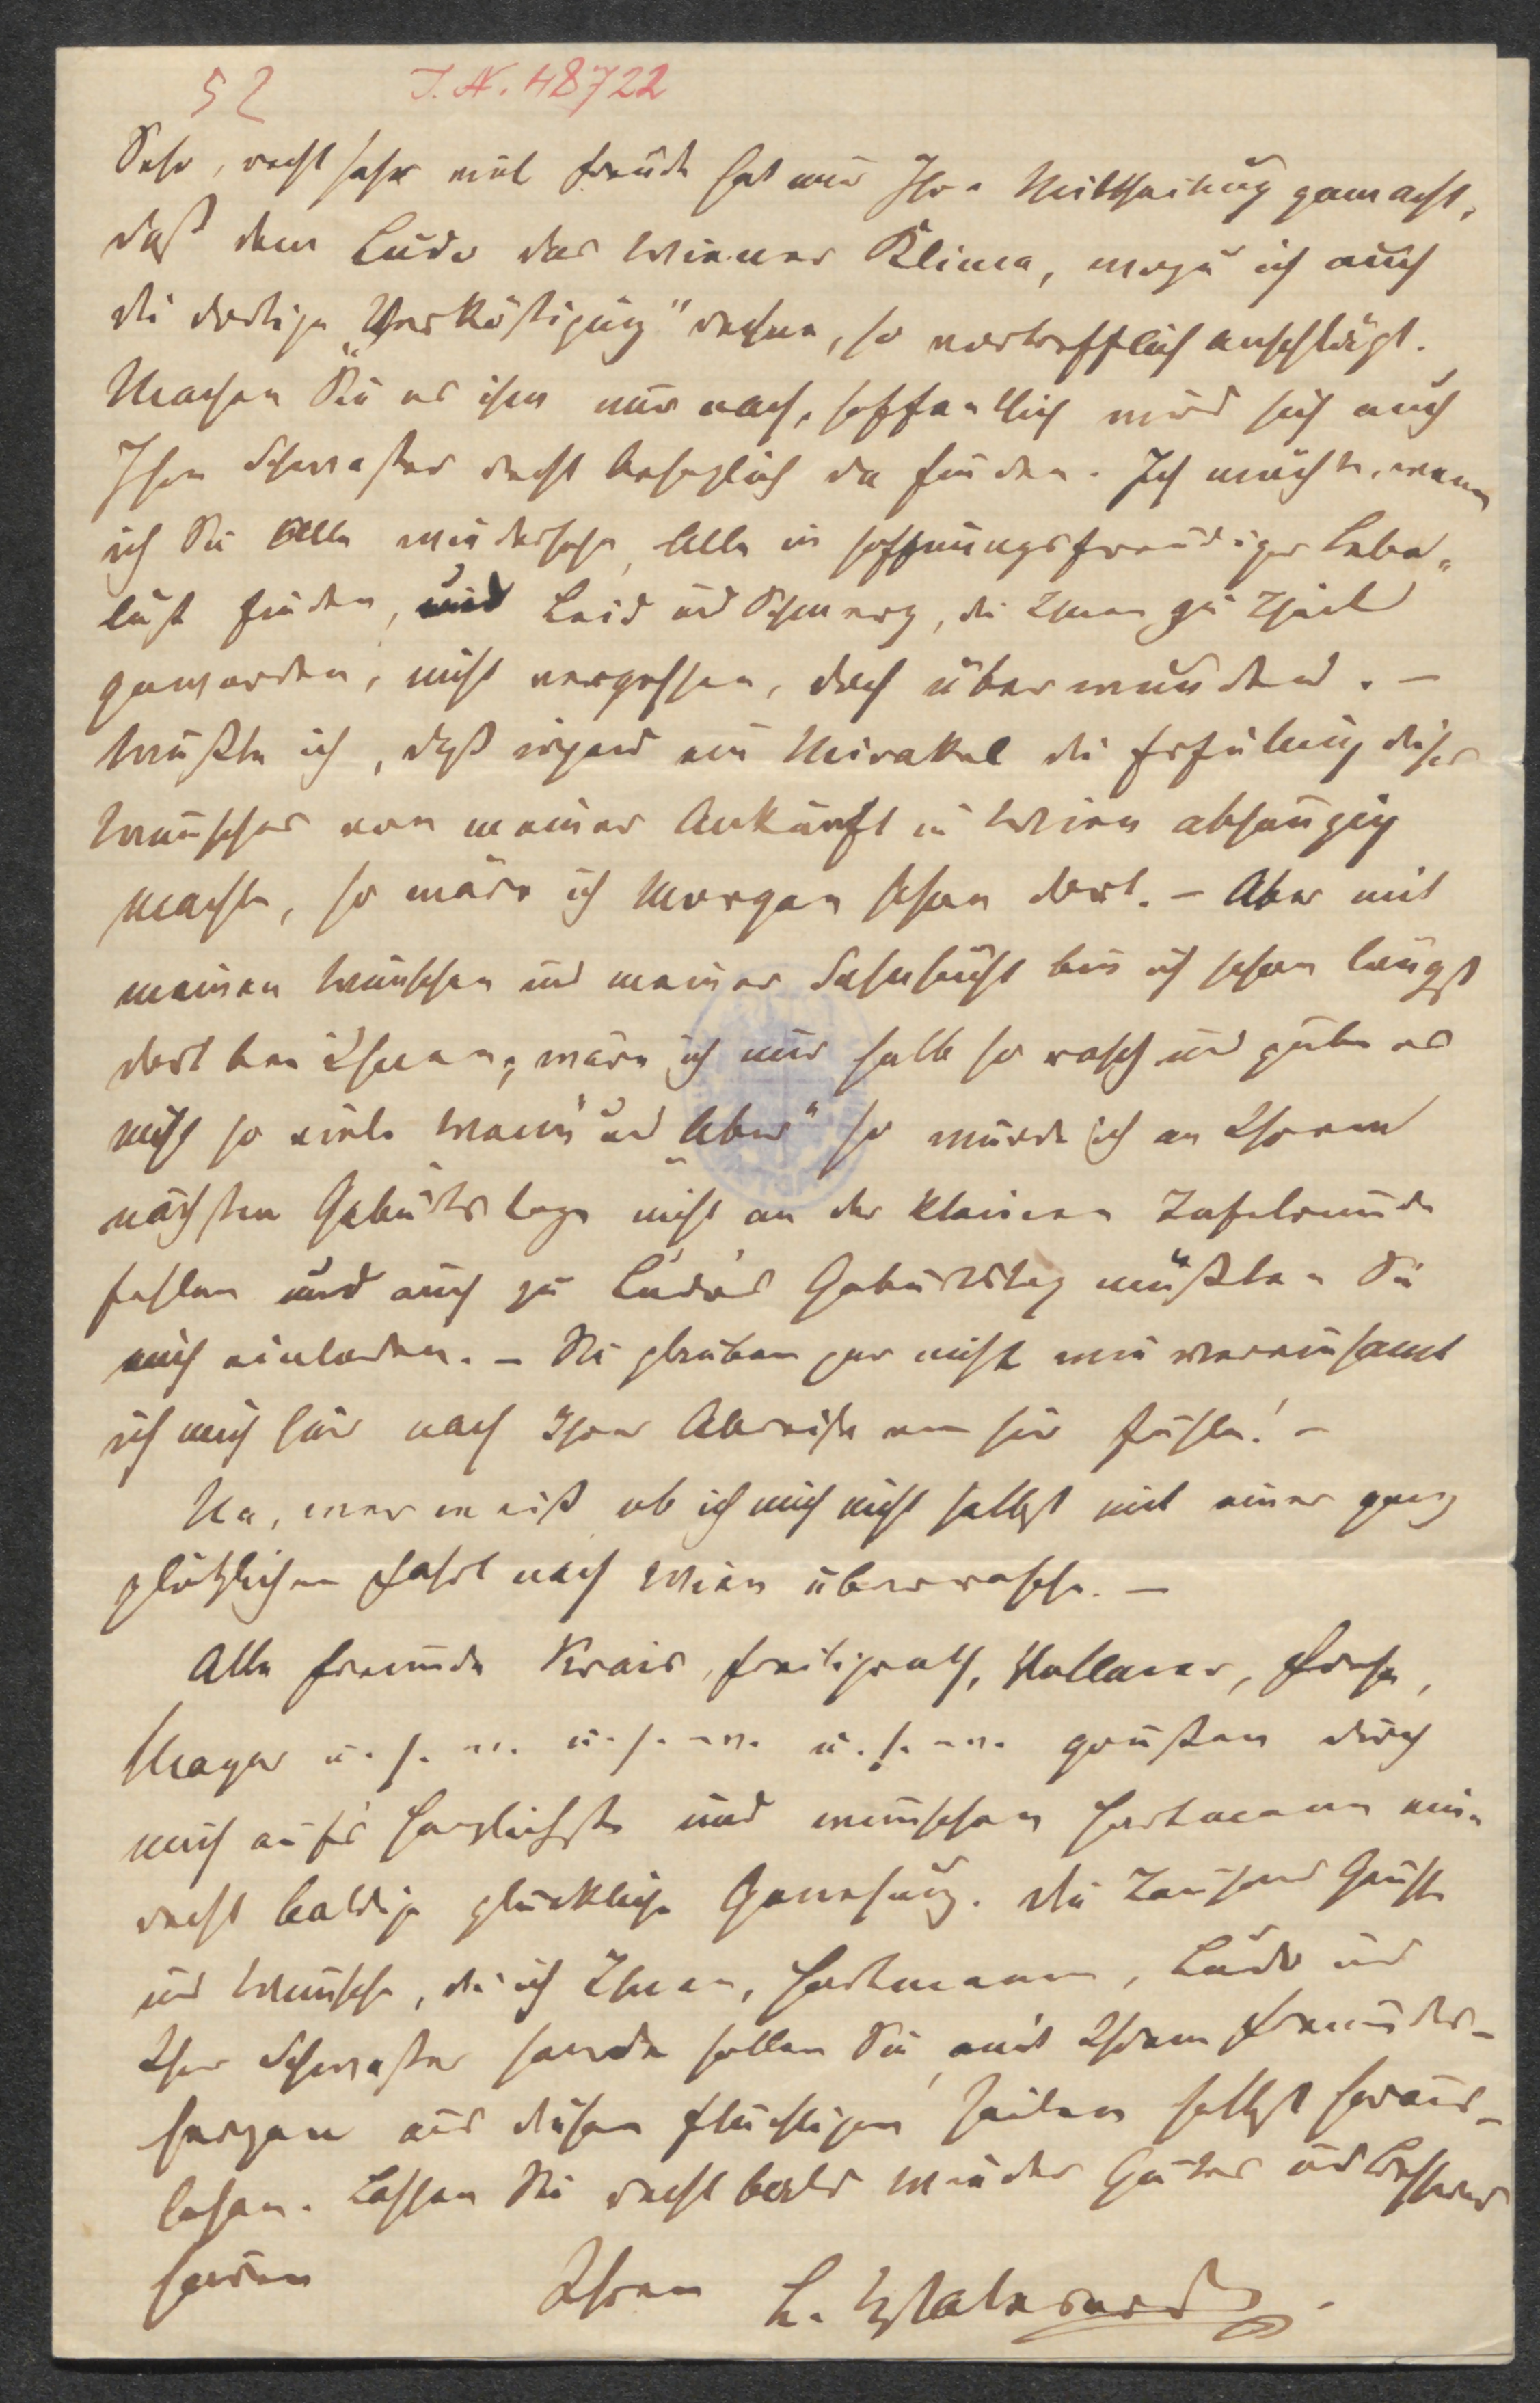 52 J. N. 48722
Sehr, recht sehr viel Freude hat mir Ihre Mittheilung gemacht,
daß dem Ludo das Wiener Klima, wozu ich auch
die dortige „Verköstigung" rechne, so vortrefflich anschlägt.
Machen Sie es ihm nur nach, hoffentlich wird sich auch
Ihre Schwester recht behaglich da finden. Ich möchte, wenn
ich Sie Alle wiedersehe, Alle in hoffnungsfreudiger Lebens„
lust finden, und Leid und Schmerz, die Ihnen zu Theil
geworden, nicht vergessen, doch überwunden. –
Wüßte ich, daß irgend ein Mirakel die Erfüllung dieses
Wunsches von meiner Ankunft in Wien abhängig
machte, so wäre ich Morgen schon dort. – Aber mit
meinen Wünschen und meiner Sehnsucht bin ich schon längst
dort bei Ihnen; wäre ich nur halb so rasch und gäbe es
nicht so viele „Wenn" und „Aber" so würde ich an Ihrem
nächsten Geburtstage nicht an der kleinen Tafelrunde
fehlen und auch zu Ludo's Geburtstag müßten Sie
mich einladen. – Sie glauben gar nicht wie vereinsamt
ich mich hier nach Ihrer Abreise von hier fühle! –
Na, wer weiß ob ich mich nicht selbst mit einer ganz
plötzlichen Fahrt nach Wien überrasche. –
Alle Freunde Krais, Freiligrath, Vollmer, Frese,
Mayer u. s. w. u. s. w. u. s. w. grüßen durch
mich auf's herzlichste und wünschen Hartmann eine
recht baldige glückliche Genesung. Die Tausend Grüße
und Wünsche, die ich Ihnen, Hartmann, Ludo und
Ihrer Schwester sende sollen Sie mit Ihrem Freundes-
herzen aus diesen flüchtigen Zeilen selbst heraus-
lesen. Lassen Sie recht bald wieder Gutes und Besseres
hören Ihren L. Walesrode.